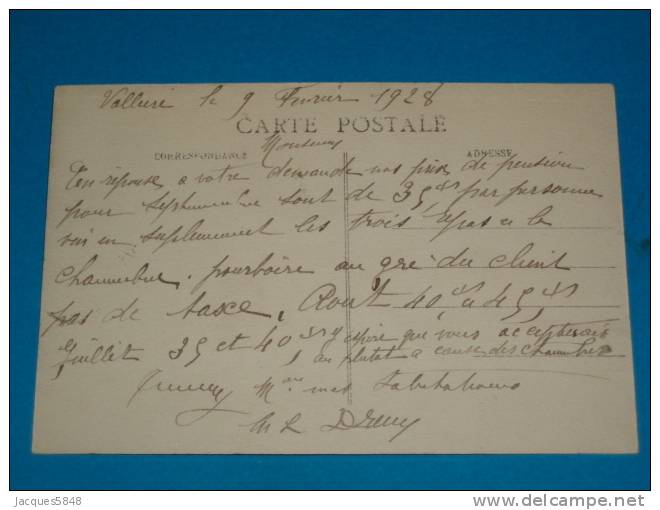 le 9 Fevrier 1928
CARTE POSTALE
CORRESPONDANCE ADRESSE
Monsieur
En réponse a votre demande nos prix de pension
pour septembre sont de 35 frs par personne
vin en suplement les trois repas et le
chambre. pourboire au gré du client
pas de taxe, Aout 40 frs a 45 frs
juillet 35 et 40 frs espère que vous
au plutat a cause des chambres
mes
Jacques5848
delcampe.net